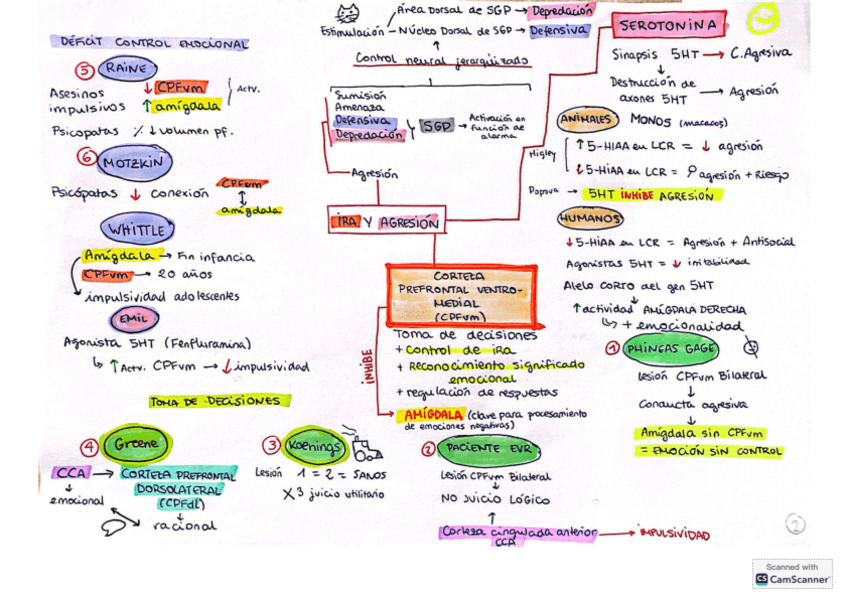 Área Dorsal de SGP → Depredación
Estimulación - Núcleo Dorsal de SGP → Defensiva
↑
Control neural jerarquizado
Sumisión
Amenaza
Defensiva
Depredación
SGP → Activación en
función de
alarma
Agresión
IRA Y AGRESIÓN
SEROTONINA
Sinapsis 5HT → C.Agresiva
↓
Destrucción de
axones 5HT → Agresión
ANIMALES MONOS (macacos)
Higley
↑ 5-HIAA en LCR = ↓ agresión
↓ 5-HIAA en LCR = agresión + Riesgo
→ 5HT INHIBE AGRESIÓN
HUMANOS
↓ 5-HIAA en LCR = Agresión + Antisocial
Agonistas 5HT = ↓ irritabilidad
Alelo corto del gen 5HT
↓
↑ actividad AMÍGDALA DERECHA
↳ + emocionalidad
① PHINEAS GAGE
Lesión CPFvm Bilateral
↓
Conducta agresiva
↓
Amígdala sin CPFvm
= EMOCIÓN SIN CONTROL
DÉFICIT CONTROL EMOCIONAL
⑤ RAINE
Asesinos
impulsivos
↓ CPFvm
↑ amígdala
Actv.
Psicopatas % ↓ volumen pf.
⑥ MOTZKIN
Psicópatas ↓ conexión
CPFvm
↕
amígdala
WHITTLE
Amígdala → Fin infancia
CPFvm → 20 años
impulsividad adolescentes
EMIL
Agonista 5HT (Fenfluramina)
↳ ↑ Actv. CPFvm → ↓ impulsividad
CORTEZA
PREFRONTAL VENTRO-
MEDIAL
(CPFvm)
Toma de decisiones
+ control de ira
+ Reconocimiento significado
emocional
+ regulación de respuestas
INHIBE
AMÍGDALA (clave para procesamiento
de emociones negativas)
TOMA DE DECISIONES
④ Greene
CCA → CORTEZA PREFRONTAL
DORSOLATERAL
(CPFdl)
↓
emocional
↓
racional
③ Koenings
Lesión 1 = 2 = SANOS
X 3 juicio utilitario
② PACIENTE EVR
Lesión CPFvm Bilateral
↓
NO JUICIO LÓGICO
↑
Corteza cingulada anterior → IMPULSIVIDAD
CCA
2
Scanned with
CS CamScanner